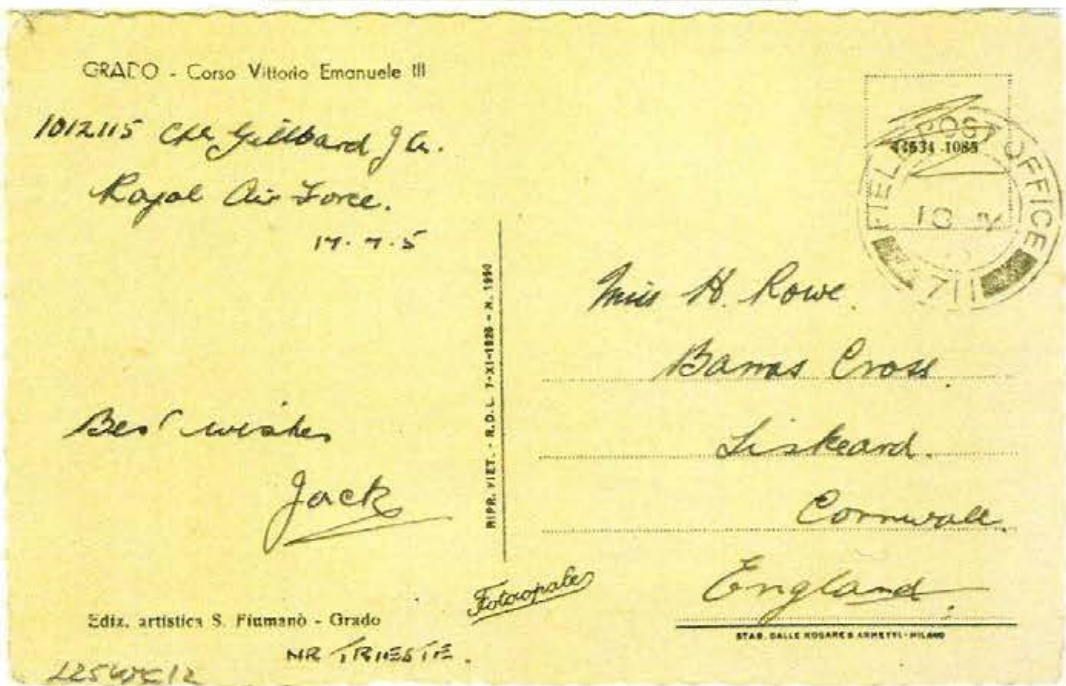 GRADO - Corso Vittorio Emanuele III
1012115 Cpl. Gillbard J G.
Royal Air Force.
17.7.5
Best wishes
Jack
Ediz. artistica S. Fiumanò - Grado
NR TRIESTE.
RIPR. VIET. - R.D.L. 7-XI-1925 - N. 1950
Fotoopale
44534 1085
FIELD POST OFFICE
711
Miss H. Rowe.
Barras Cross.
Liskeard.
Cornwall.
England.
STAB. DALLE NOGARE & ARMETTI - MILANO